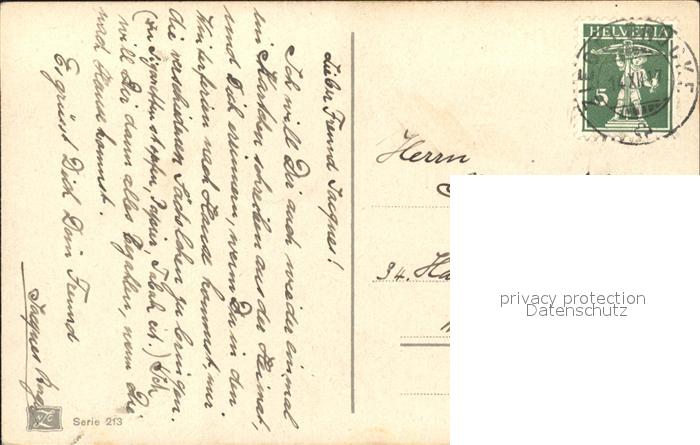 Lieber Freund Jacques!
Ich will Dir auch wieder einmal
ein Kärtchen schreiben aus der Heimat,
und Dich erinnern, wenn Du in den
Winterferien nach Hause kommst, mir
die verschiedenen Sächelchen zu bringen.
(den Zigaretten stopfer, Papier, Tabak etc.) Ich
will Dir dann alles bezahlen, wenn Du
nach Hause kommst.
Es grüsst Dich Dein Freund
Jacques
Serie 213
HELVETIA
5
Herrn
34.
privacy protection
Datenschutz